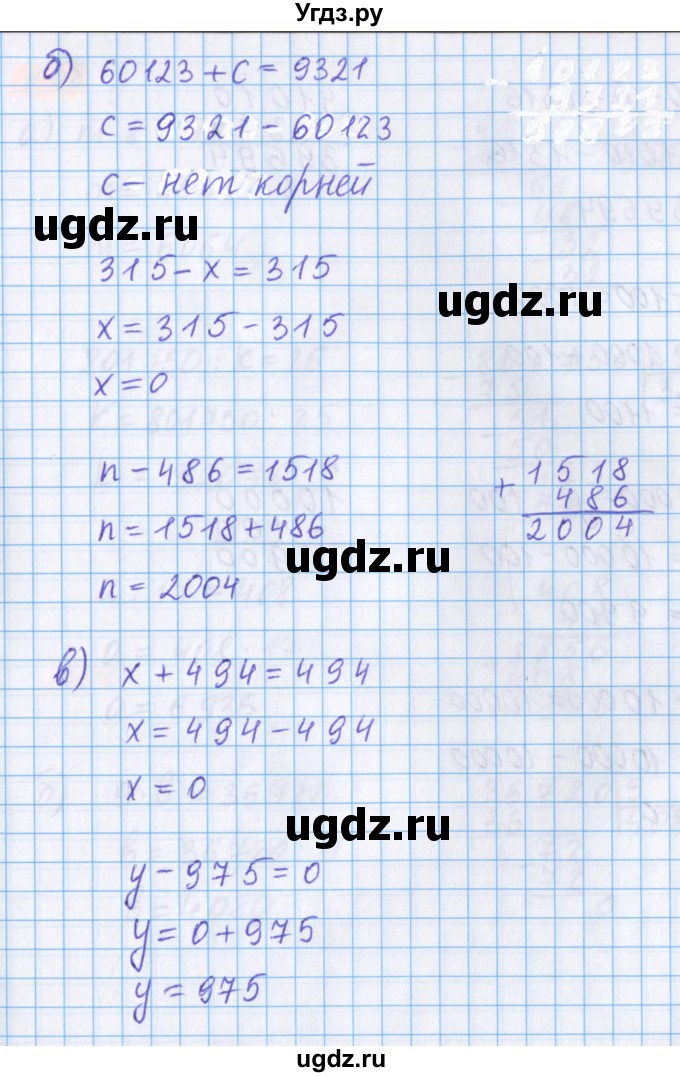 Угдз.ру
б) 60123 + c = 9321
c = 9321 - 60123
c - нет корней
ugdz.ru
315 - x = 315
ugdz.ru
x = 315 - 315
x = 0
n - 486 = 1518
n = 1518 + 486
n = 2004
+ 1518
486
2004
ugdz.ru
в) x + 494 = 494
x = 494 - 494
x = 0
ugdz.ru
y - 975 = 0
y = 0 + 975
y = 975
ugdz.ru